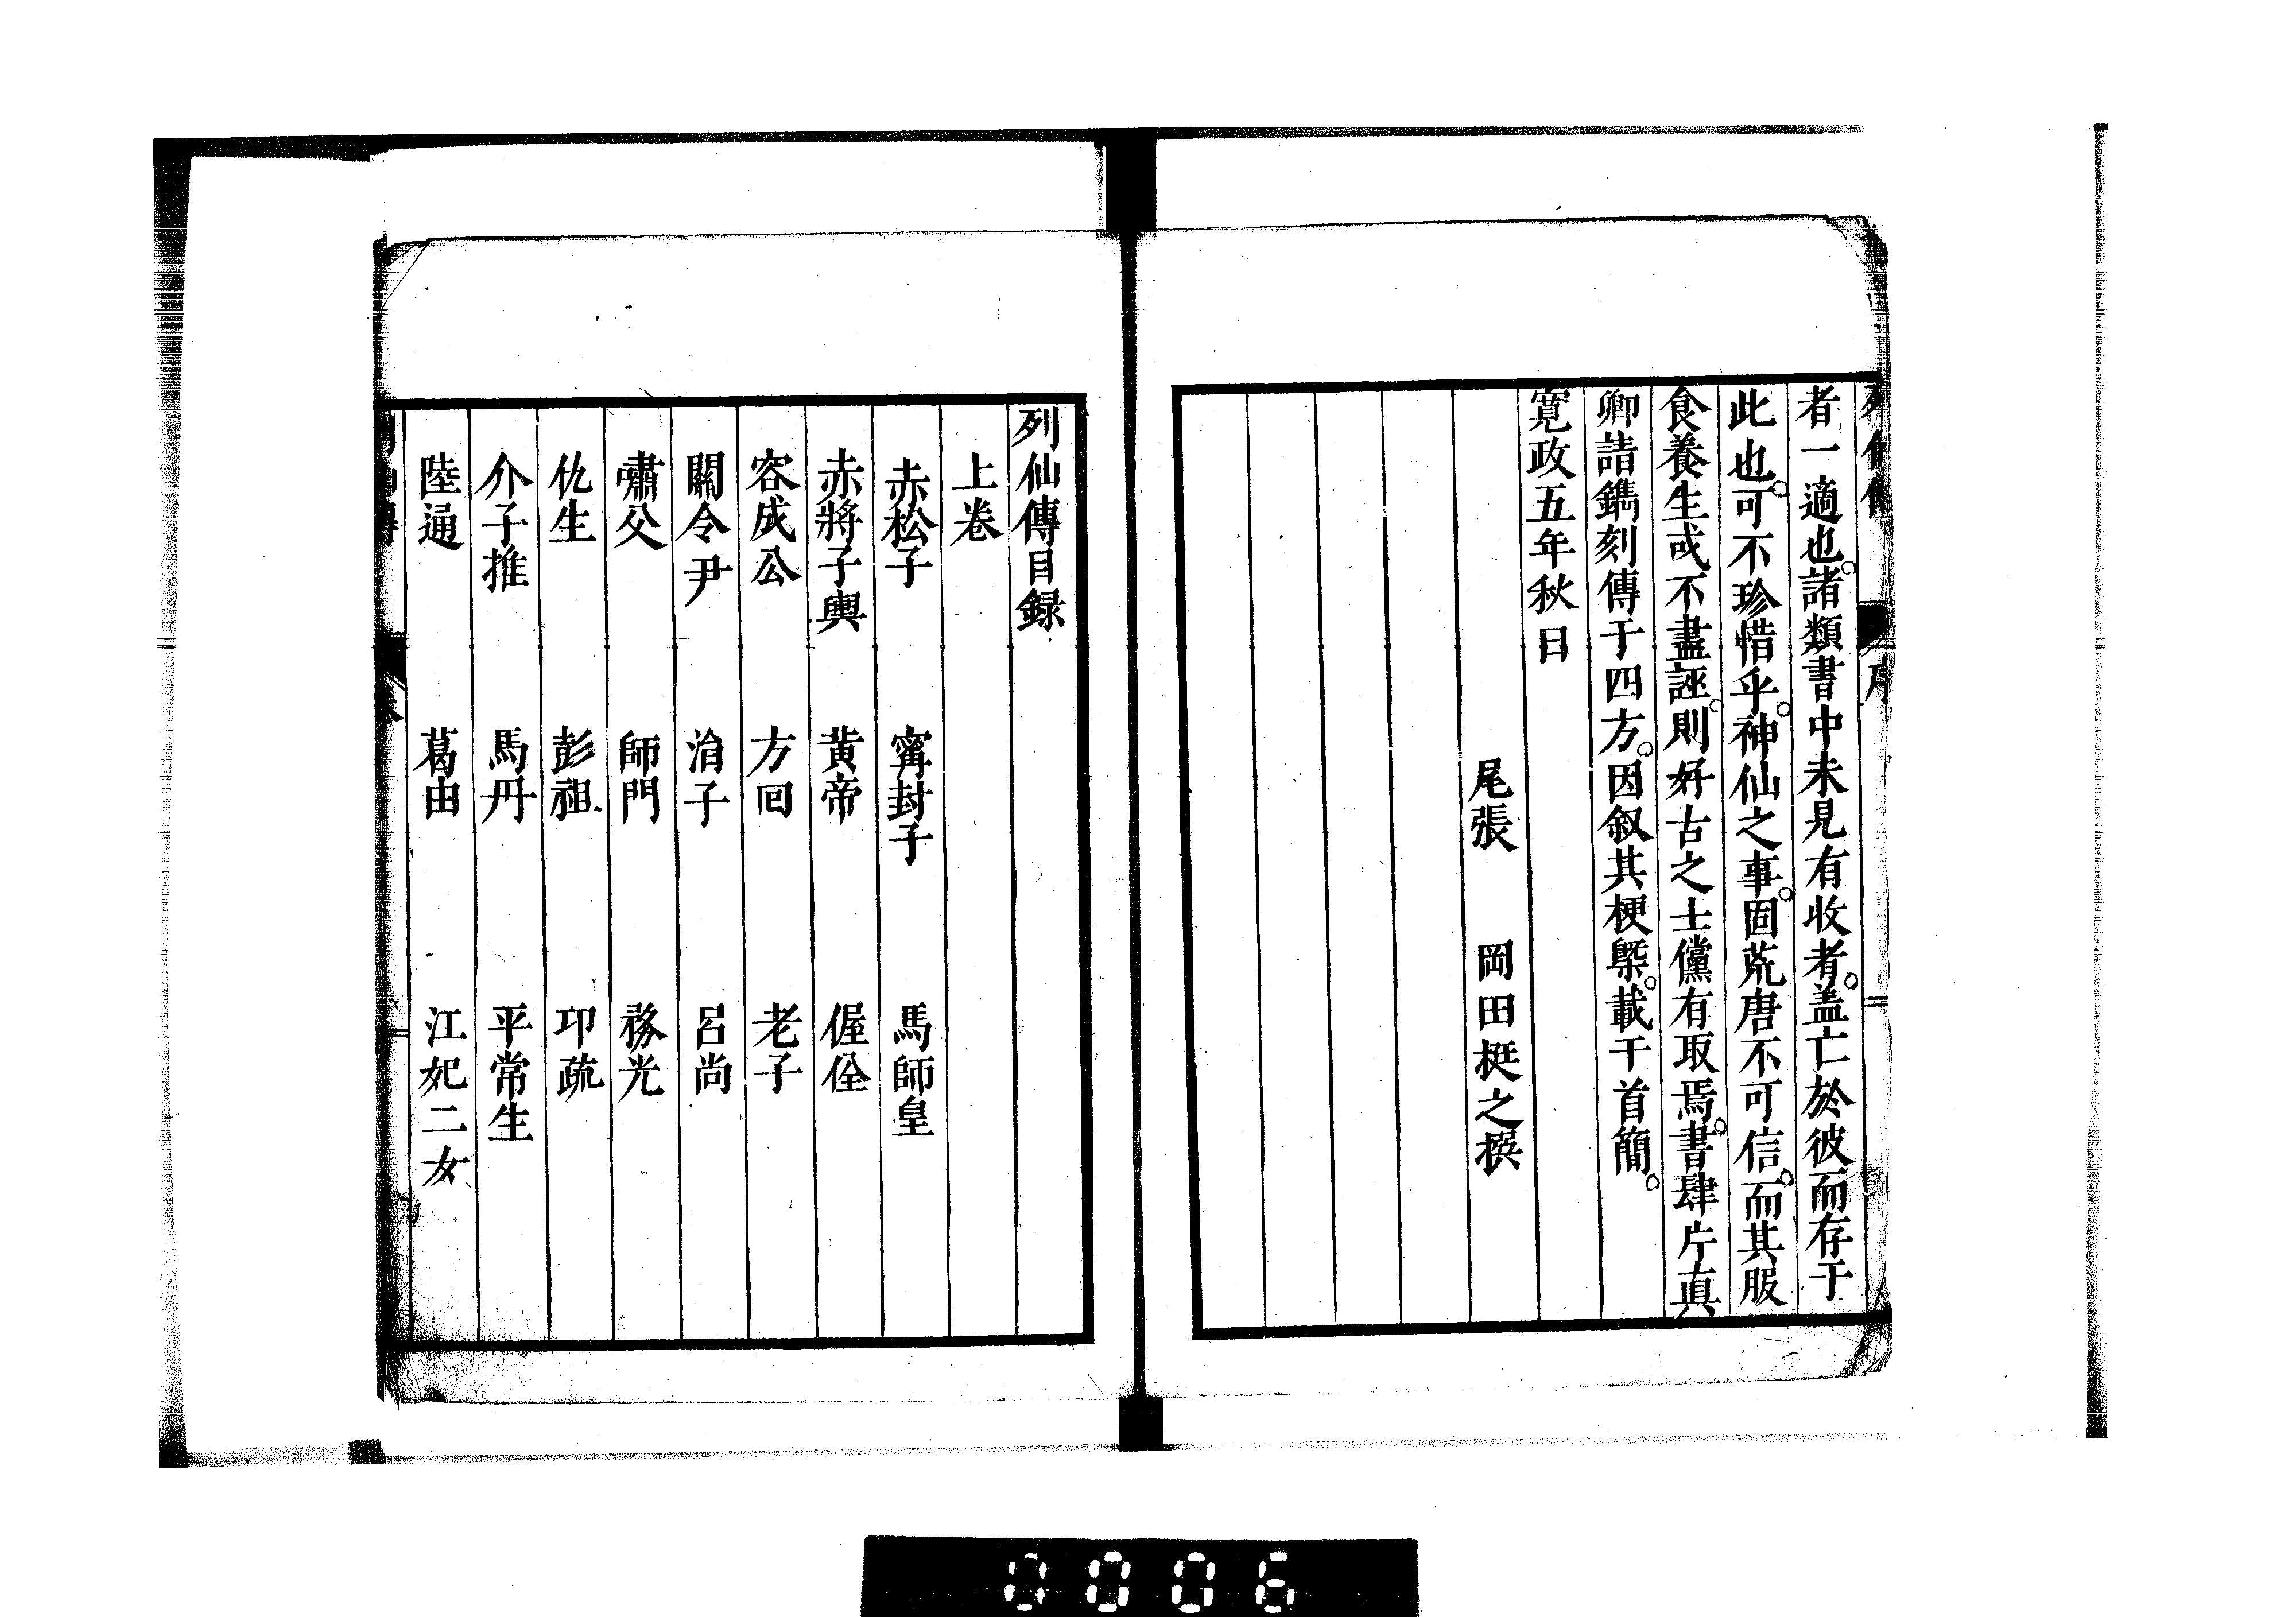 者一適也。諸類書中未見有收者。盖亡於彼而存于
此也。可不珍惜乎。神仙之事。固荒唐不可信。而其服
食養生或不盡誣。則好古之士儻有取焉。書肆片眞
卿請鐫刻傳于四方。因叙其梗槩。載于首簡。
寛政五年秋日
尾張 岡田挺之撰
列仙傳目録
上卷
赤松子 寗封子 馬師皇
赤將子輿 黃帝 偓佺
容成公 方回 老子
關令尹 涓子 呂尚
嘯父 師門 務光
仇生 彭祖 卭疏
介子推 馬丹 平常生
陸通 葛由 江妃二女
0006